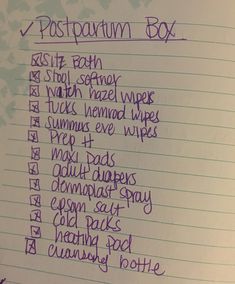 ✓ Postpartum Box
☒ Sitz Bath
☒ Stool softner
☒ watch hazel wipes
☒ tucks hemroid wipes
☒ summers eve wipes
☒ Prep H
☒ maxi pads
☒ adult diapers
☒ dermoplast spray
☒ epsom salt
☒ Cold packs
☒ heating pad
☒ cleansing bottle